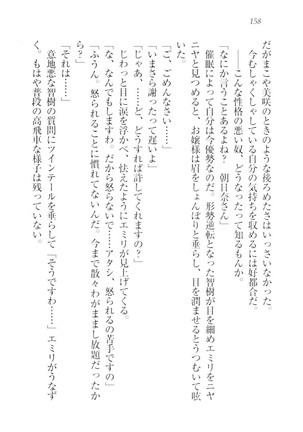 158
だがまこや美咲のときのような後ろめたさはいっさいなかった。
今むしゃくしゃしている自分の気持ちを収めるには好都合だ。
――こんな性格の悪い奴、どうなったって知るもんか。
「なにか言うことあるよね？　朝日奈さん」
催眠によって自分は今優勢なのだ。形勢逆転となった智樹が目を細めエミリをニヤ
ニヤと見つめると、お嬢様は眉をしょんぼりと垂らし、目を潤ませるとうつむいて呟
いた。
「ご、ごめんなさい……」
「いまさら謝ったって遅いよ」
「じゃあ、……ど、どうすれば許してくれますの？」
じわっと目に涙を浮かべ、怯えたようにエミリが見上げてくる。
「な、なんでもしますわ。だから怒らないで……アタシ、怒られるの苦手ですの」
「ふうん。怒られることに慣れてないんだ。今まで散々わがまま放題だったか
ら？」
「それは……」
意地悪な智樹の質問にツインテールを垂らして「そうですわ……」エミリがうなず
く。もはや普段の高飛車な様子は残っていない。